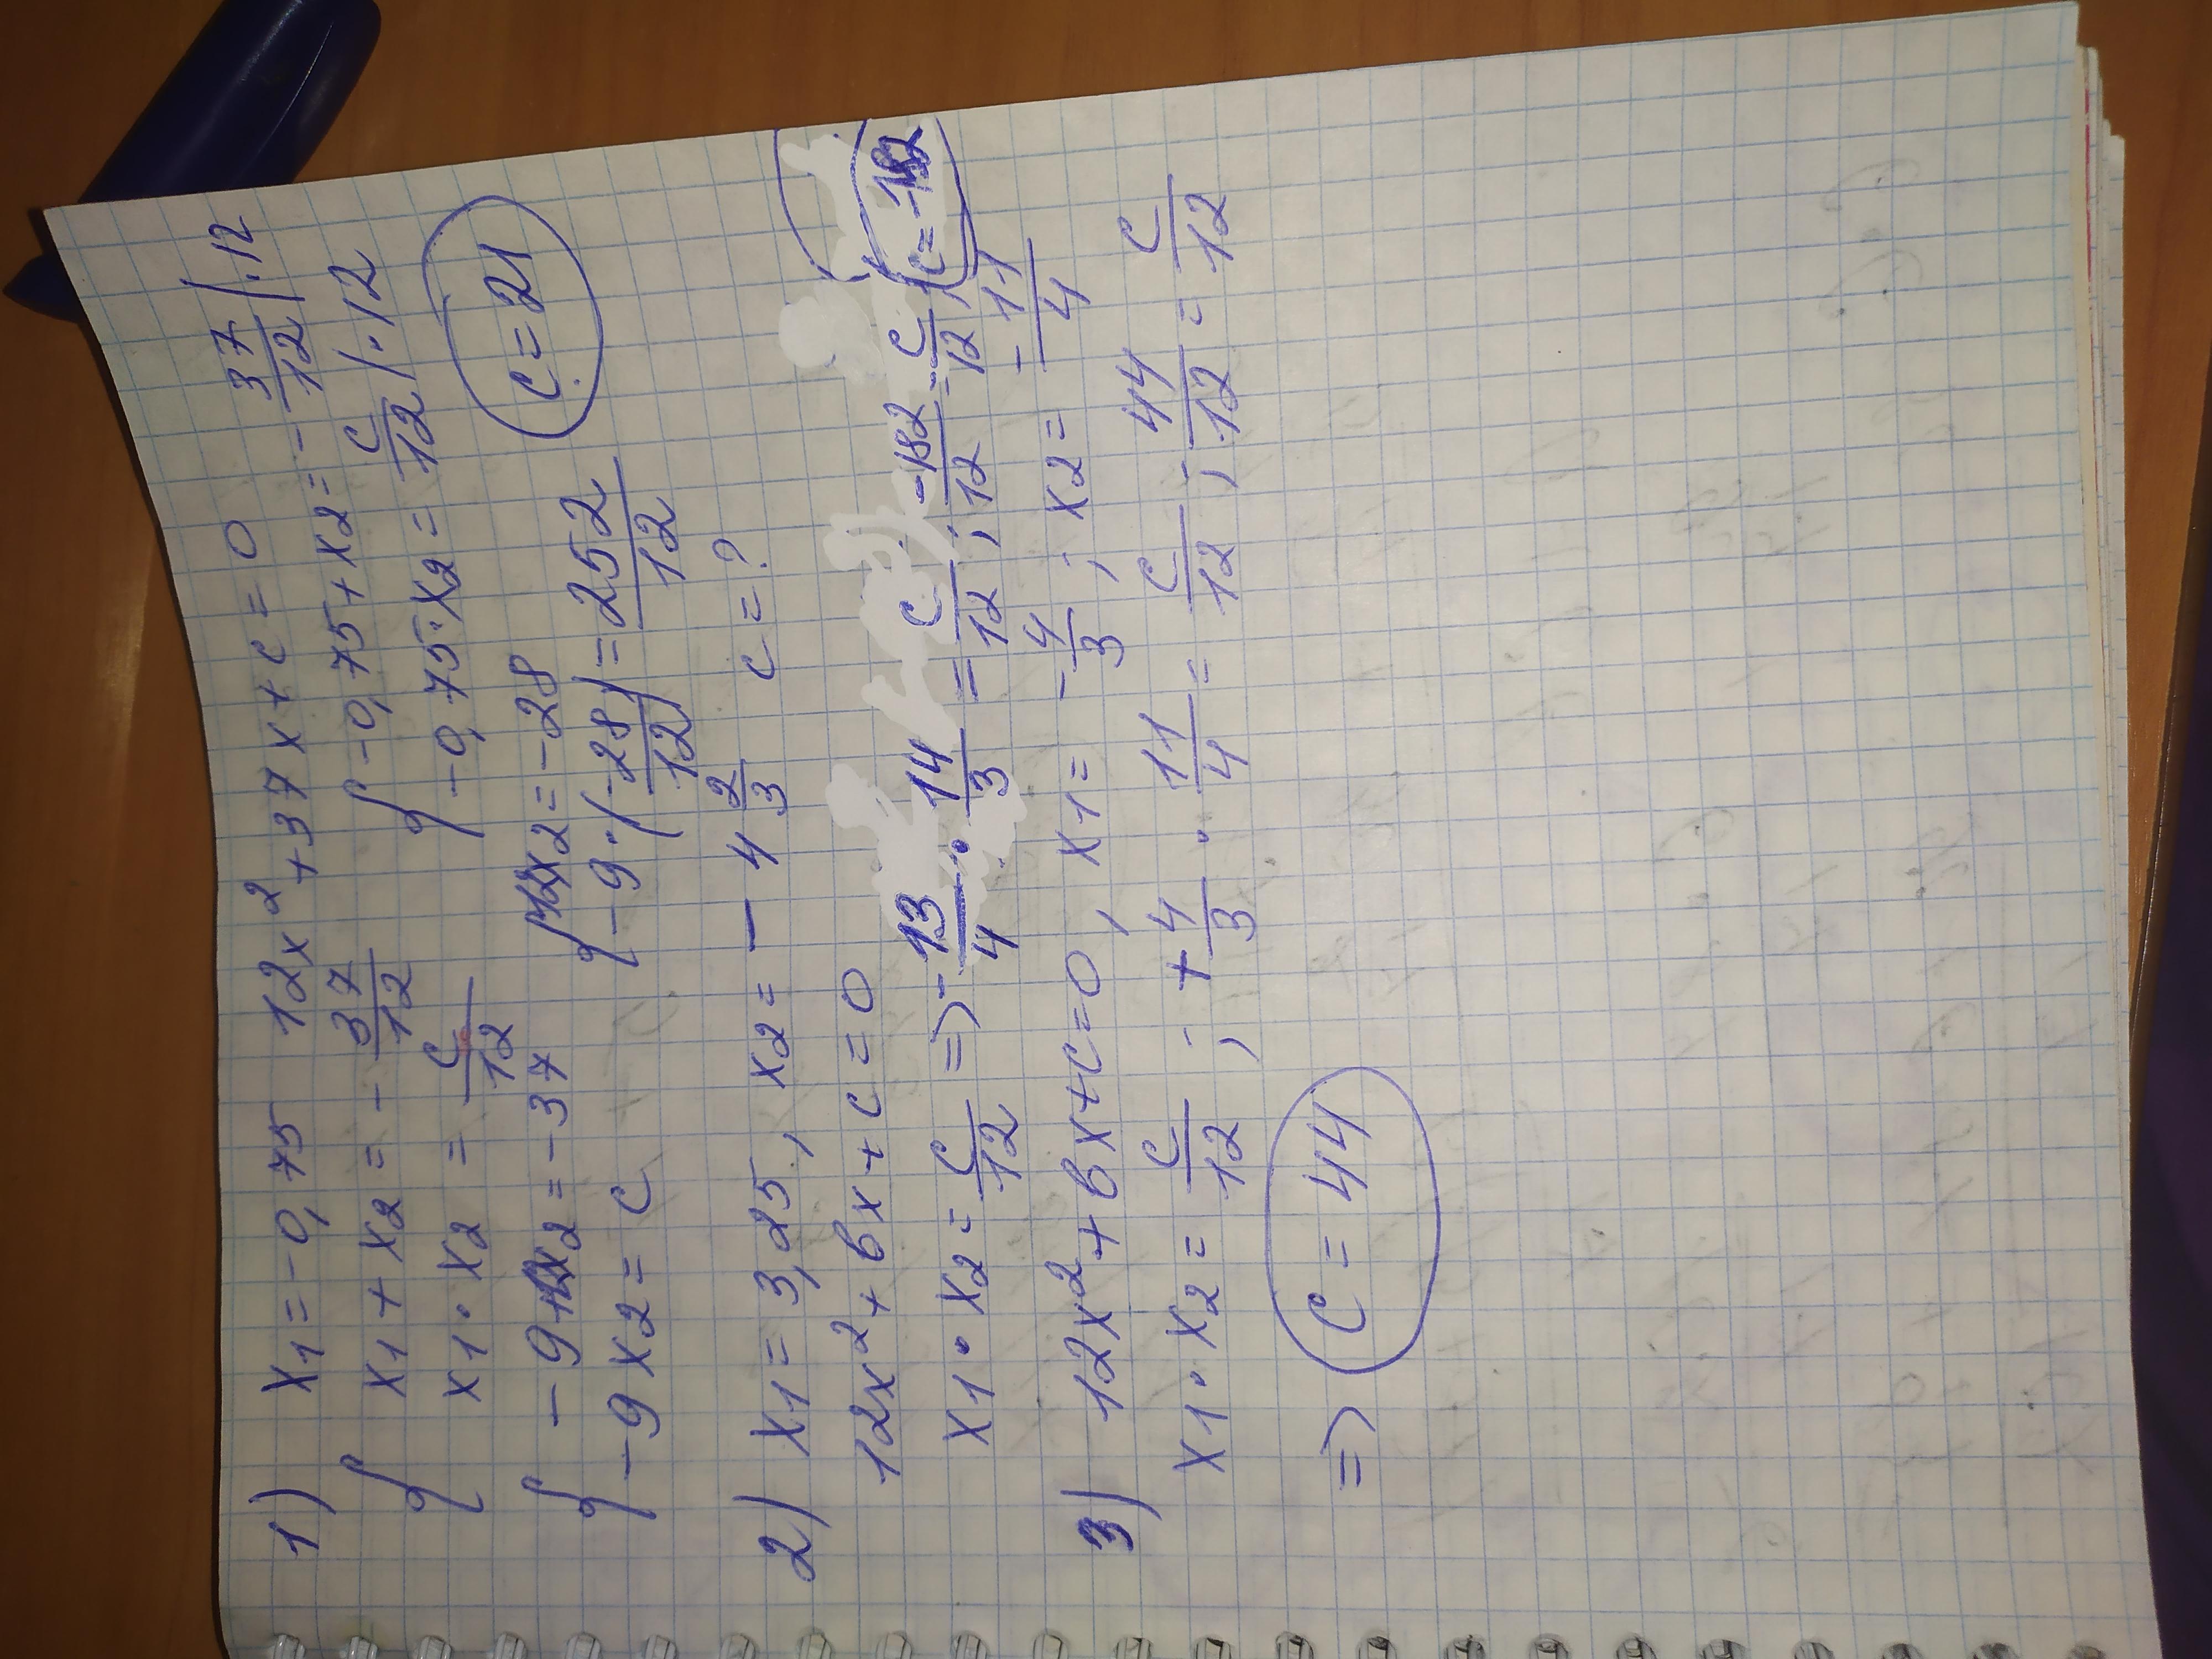 1) x1 = -0,75 12x² + 37x + c = 0
{ x1 + x2 = - 37/12 { -0,75 + x2 = - 37/12 | · 12
x1 · x2 = c/12 -0,75 · x2 = c/12 | · 12
{ -9 + 12x2 = -37 { 12x2 = -28
-9x2 = c -9 · (-28/12) = 252/12 c = 21
2) x1 = 3,25, x2 = - 4 2/3 c = ?
12x² + bx + c = 0
x1 · x2 = c/12 => - 13/4 · 14/3 = c/12 ; -182/12 = c/12 ; c = -182
3) 12x² + bx + c = 0, x1 = - 4/3 ; x2 = - 11/4
x1 · x2 = c/12 ; + 4/3 · 11/4 = c/12 ; 44/12 = c/12
=> c = 44